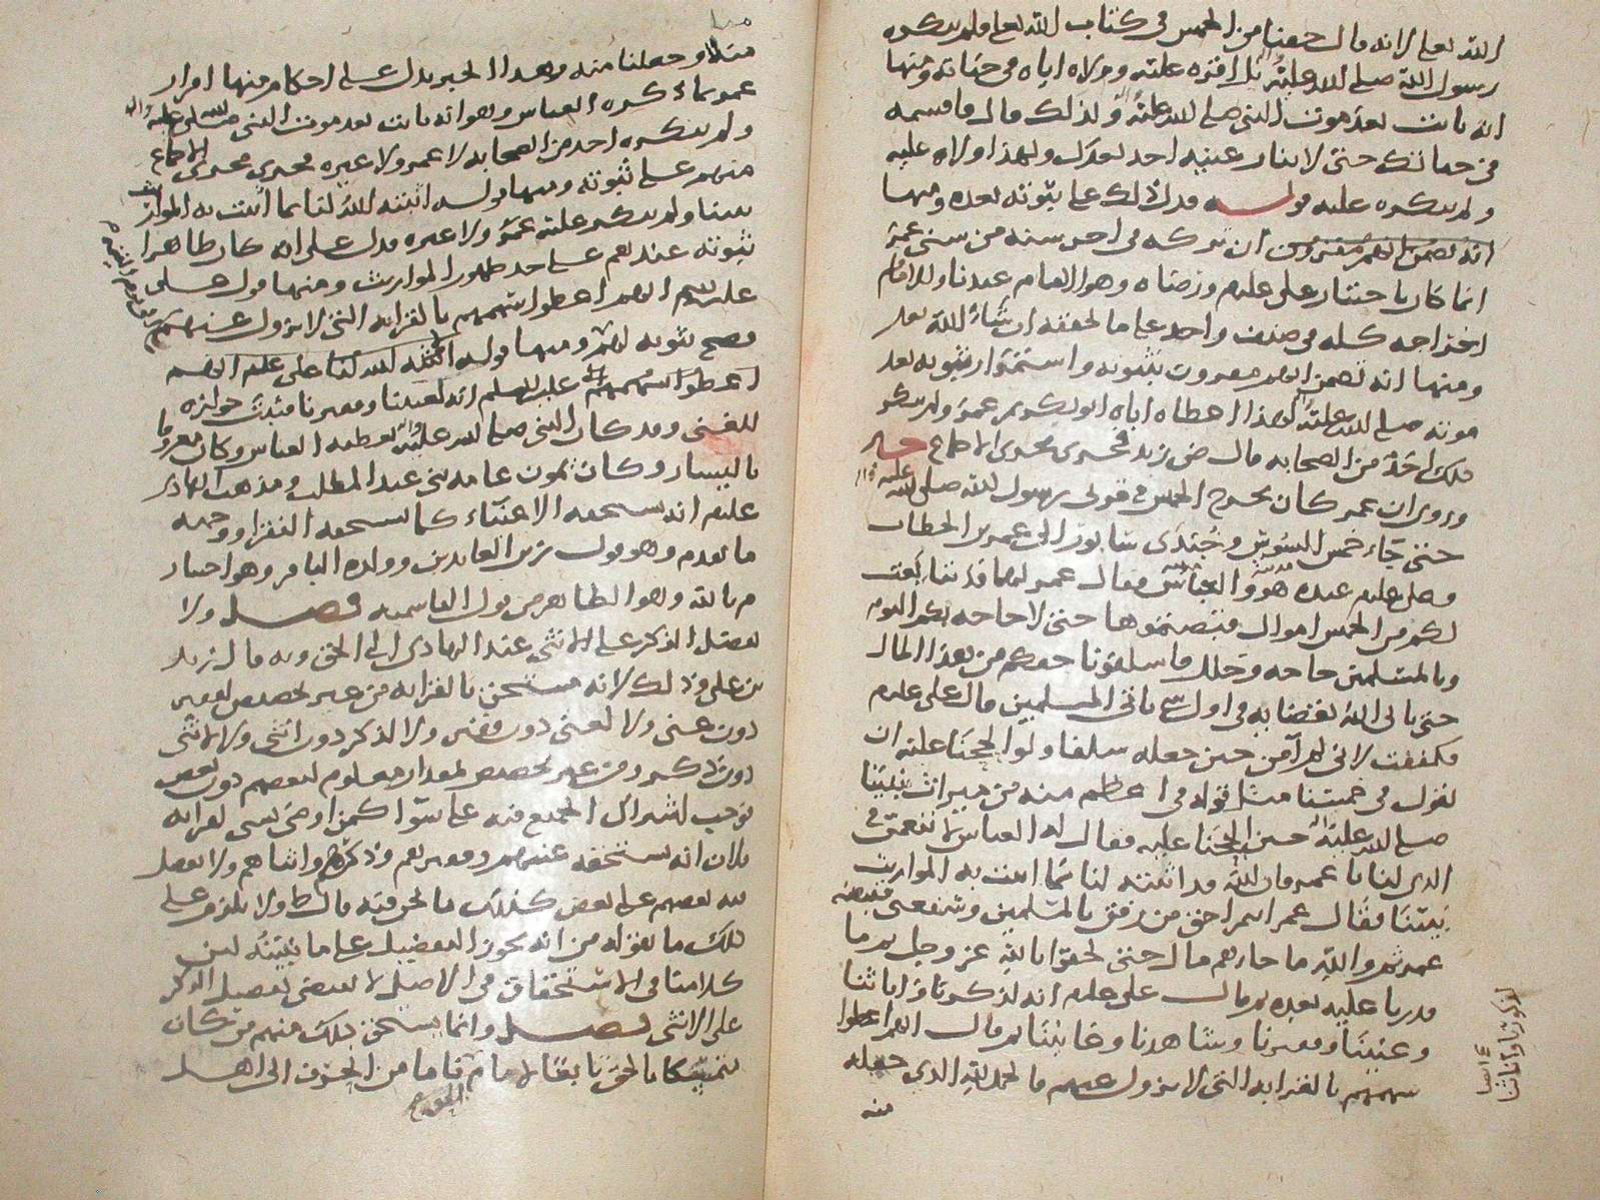 الله تعالى لانه قال حقنا من الخمس في كتاب الله تعالى ولم ينكره
رسول الله صلى الله عليه واله بل اقره عليه وولاه اياه في حياته ومنها
انه ثابت بعد موت النبي صلى الله عليه واله ولذلك قال فاقسمه
في حياتك حتى لا ينازعنيه احد بعدك ولهذا ولاه عليه
ولم ينكره عليه قوله فدل ذلك على ثبوته بعده ومنها
انه تضمن انهم مقرون ان تركه في اخر سنة من سني عمر
انما كان باختيار علي عليلم ورضاه وهو الامام عندنا وللامام
اخراجه كله في صنف واحد على ما نحققه ان شاء الله تعالى
ومنها انه تضمن انهم معروف بثبوته واستمرار ثبوته بعد
موته صلى الله عليه واله لهذا اعطاه اياه ابو بكر وعمر ولم ينكر
ذلك احد من الصحابة قال ض زيد فجرى مجرى الاجماع خبر
وروي ان عمر كان يخرج الخمس في قربى رسول الله صلى الله عليه واله
حتى جاء خمس السوس وجندي سابور الى عمر بن الخطاب
وعلي عليلم عنده هو والعباس فقال عمر لهما قد تتابعت
لكم من الخمس اموال فقبضتموها حتى لا حاجة بكم اليوم
وبالمسلمين حاجة وخلل فاسلفونا حقكم من هذا المال
حتى ياتي الله بقضائه في اول شي ياتي المسلمين قال علي عليلم
فكففت لاني لم آمن حين جعله سلفا ولو الححنا عليه ان
يقول في خمسنا مثل قوله في اعظم منه من ميراث نبينا
صلى الله عليه واله حين الححنا عليه فقال له العباس لا تغتمز في
الذي لنا يا عمر فان الله قد اثبته لنا بما اثبت به المواريث
بيننا فقال عمر انتم احق من رفق بالمسلمين وشفعني فقبضه
عمر ثم والله ما جاءهم مال حتى لحق بالله عز وجل ثم ما
قدرنا عليه بعده ثم قال علي عليلم انه لذكورنا واناثنا
وغنينا وفقيرنا وشاهدنا وغائبنا ثم قال انهم اعطوا
سهمهم بالقرابة التي لا تزول عنهم فالحمد لله الذي جعله
منه
لذكورنا واناثنا
مثلا وجعلنا منه وهذا الخبر يدل على احكام منها اقرار
عمر بما ذكره العباس وهو انه ثابت بعد موت النبي صلى الله عليه واله
ولم ينكره احد من الصحابة لا عمر ولا غيره فجرى مجرى الاجماع
منهم على ثبوته ومنها قوله اثبته الله لنا بما اثبت به المواريث
بيننا ولم ينكر عليه عمر ولا غيره فدل على انه كان ظاهرا
ثبوته عندهم على حد ظهور المواريث ومنها قول علي
عليلم انهم اعطوا سهمهم بالقرابة التي لا تزول عنهم
فصح ثبوته لهم ومنها قوله
اعطوا سهمهم عليلم انه لغنينا وفقيرنا فثبت جوازه
للغني وقد كان النبي صلى الله عليه واله يعطيه العباس وكان معروفا
باليسار وكان يمون عامة بني عبد المطلب ومذهب الهادي
عليلم انه يستحقه الاغنياء كما يستحقه الفقراء ووجهه
ما تقدم وهو قول زين العابدين وولده الباقر وهو اختيار
م بالله وهو الظاهر من قول القاسمية فصل ولا
يفضل الذكر على الانثى عند الهادي الى الحق وبه قال زيد
بن علي وذلك لانه مستحق بالقرابة من غير تخصيص لفقير
دون غني ولا لغني دون فقير ولا لذكر دون انثى ولا لانثى
دون ذكر ومن غير تخصيص لمقدار معلوم لبعضهم دون بعض
فوجب اشتراك الجميع فيه على سوا كمن اوصى بشي لقرابة
فلان انه يستحقه غنيهم وفقيرهم وذكرهم وانثاهم ولا يفضل
فيه بعضهم على بعض كذلك ما نحن فيه قال ط ولا يلزم على
ذلك ما نقوله من انه يجوز التفضيل على ما نبينه لان
كلامنا في الاستحقاق في الاصل لا يقتضي تفضيل الذكر
على الانثى فصل وانما يستحق ذلك منهم من كان
متمسكا بالحق تابعا لامام قاما من انحرف الى اهل